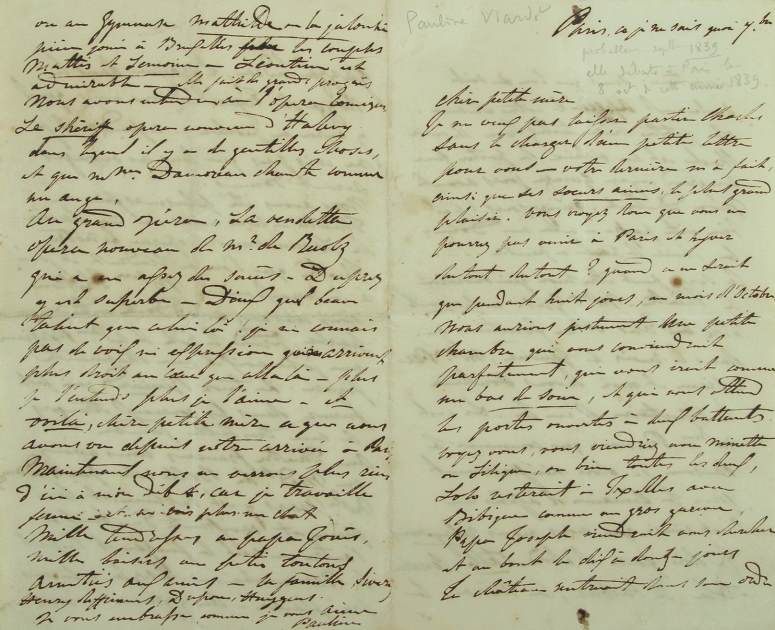 Pauline Viardot
Paris, ce je ne sais quoi 7bre
probablem. sept. 1839
elle débuta à Paris le
8 oct de cette année 1839
chère petite mère
Je ne veux pas laisser partir Charles
sans le charger d'une petite lettre
pour vous – votre dernière m'a fait,
ainsi que ses soeurs ainées, le plus grand
plaisir. Vous croyez donc que vous ne
pourrez pas venir à Paris cet hyver
du tout du tout? quand ce ne serait
que pendant huit jours, au mois d'Octobre
nous aurions justement une petite
chambre qui vous conviendrait
parfaitement, qui vous irait comme
un bas de soie, et qui vous attend
les portes ouvertes à deux battants.
voyez vous, vous viendriez avec Minette
ou, ou bien toutes les deux,
Lolo resterait à Ixelles avec
Bibique comme un gros
Papa Joseph viendrait vous chercher
et au bout de dix à douze jours
le château rentrerait dans son ordre
ou au Gymnase mathilde ou la jalousie
pièce jouée à Bruxelles les couples
Mathis et Lemoine – Léontine est
admirable – elle fait de grands progrès
Nous avons entendu à l'opera Comique
Le Shériff opera nouveau d'Halevy
dans lequel il y a de gentilles choses,
et que mme. Damoreau chante comme
un ange.
Au grand opéra, La vendetta
opera nouveau de mr. de Ruolz
qui a eu assez de succès – Duprez
y est superbe – Dieux quel beau
talent que celui là! je ne connais
pas de voix ni expression qui arrivent
plus droit au coeur que celle là – plus
je l'entends plus je l'aime – et
voila, chère petite mère ce que nous
avons vu depuis notre arrivée à Paris
Maintenant nous ne verrons plus rien
d'ici à mon début, car je travaille
ferme et ne vois plus un chat
Mille tendresses au papa Joseph,
mille baisers au petit toutou
amitiés aux amis – la famille
Henry, Dupont, Huygens.
Je vous embrasse comme je vous aime
Pauline